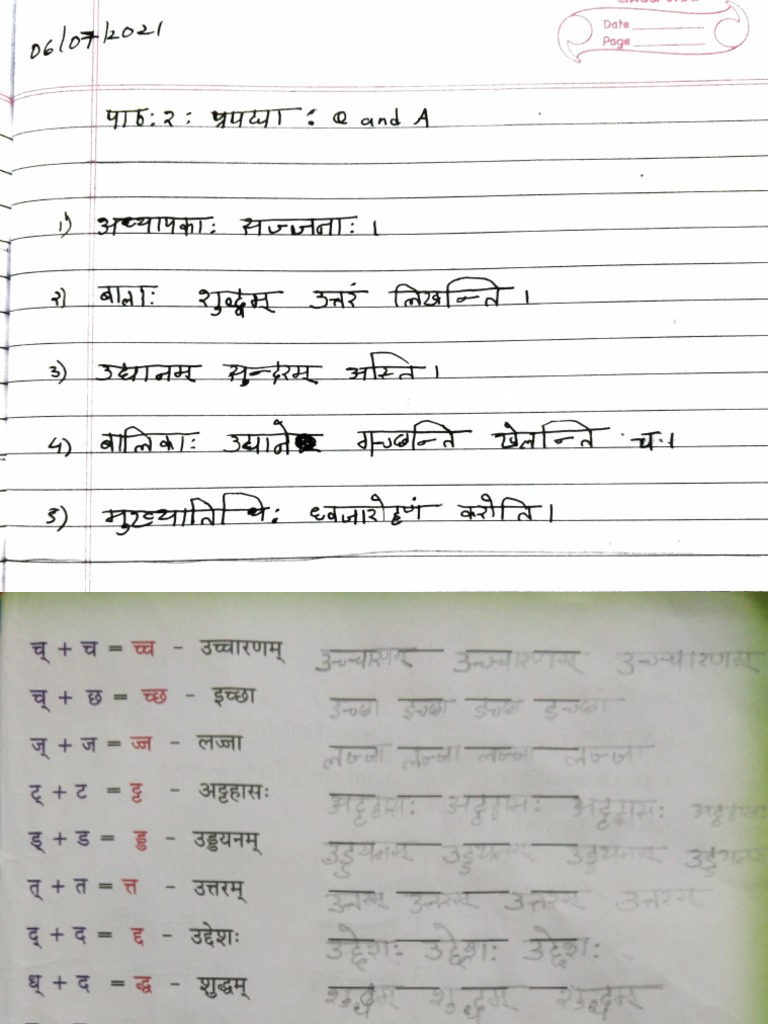 Date
Page
06/07/2021
पाठ:२: : Q and A
1) अध्यापकाः सज्जनाः ।
२) बालाः शुद्धम् उत्तरं लिखन्ति ।
३) उद्यानम् सुन्दरम् अस्ति ।
4) बालिकाः उद्याने गच्छन्ति खेलन्ति च ।
5) मुख्यातिथिः ध्वजारोहणं करोति ।
च् + च = च्च - उच्चारणम् उच्चारणम् उच्चारणम् उच्चारणम्
च् + छ = च्छ - इच्छा इच्छा इच्छा इच्छा इच्छा
ज् + ज = ज्ज - लज्जा लज्जा लज्जा लज्जा लज्जा
ट् + ट = ट्ट - अट्टहासः अट्टहासः अट्टहासः अट्टहासः
ड् + ड = ड्ड - उड्डयनम् उड्डयनम् उड्डयनम् उड्डयनम्
त् + त = त्त - उत्तरम् उत्तरम् उत्तरम् उत्तरम् उत्तरम्
द् + द = द्द - उद्देशः उद्देशः उद्देशः उद्देशः
ध् + द = द्ध - शुद्धम् शुद्धम् शुद्धम् शुद्धम्